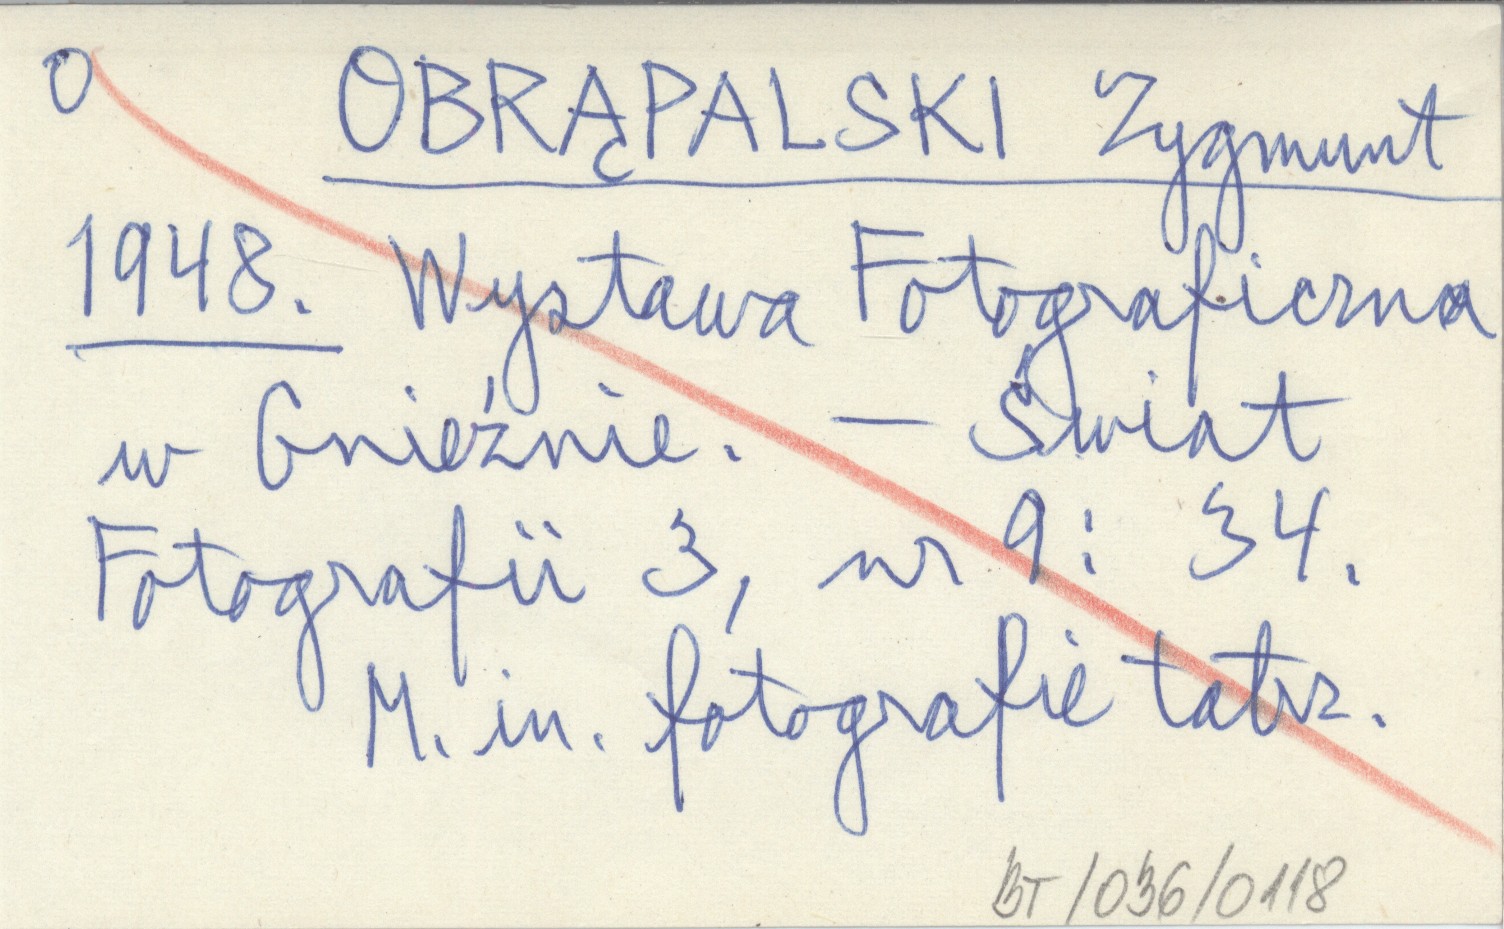 O OBRĄPALSKI Zygmunt
1948. Wystawa Fotograficzna
w Gnieźnie. — Świat
Fotografii 3, nr 9: 34.
M. in. fotografie tatrz.
BT/036/0118